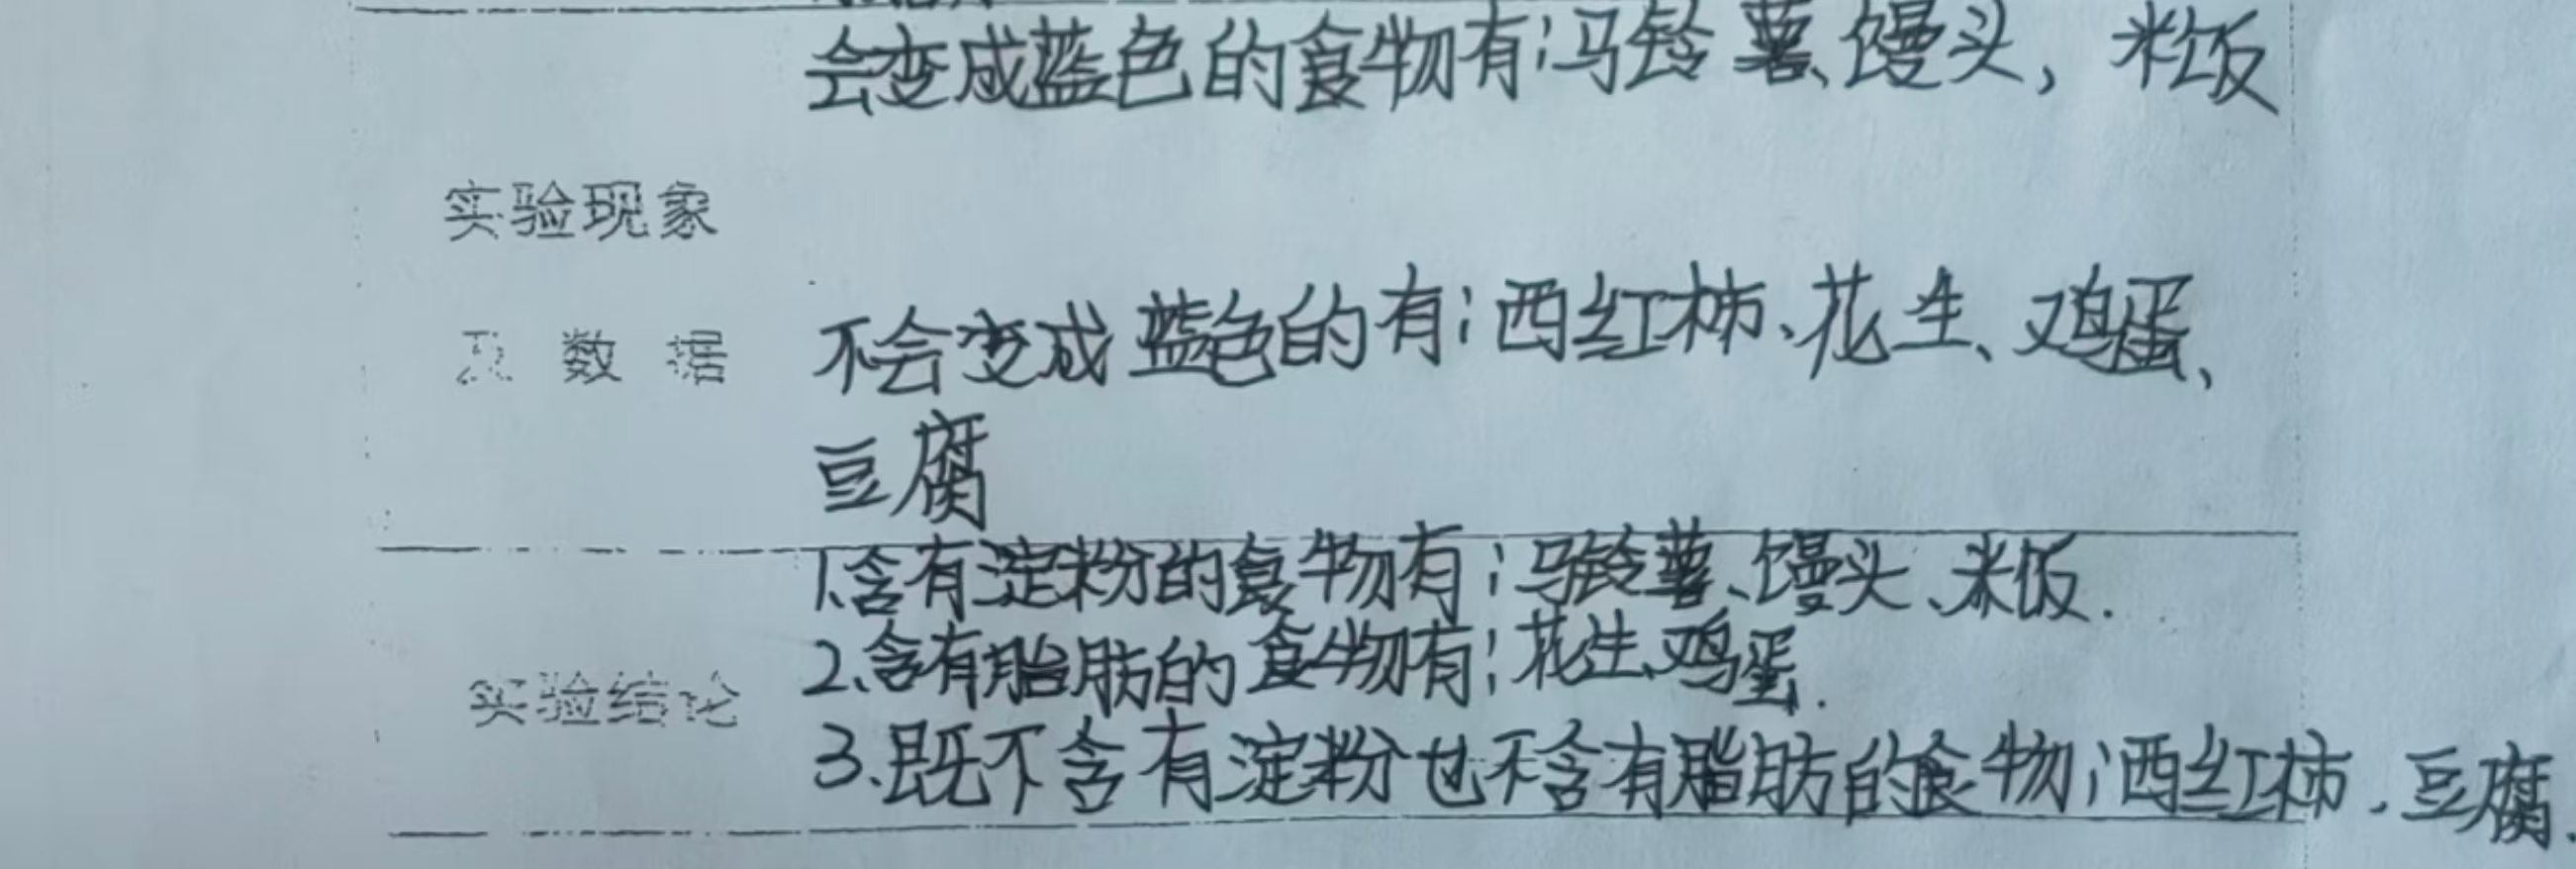 会变成蓝色的食物有:马铃薯、馒头,米饭
实验现象
及 数 据
不会变成蓝色的有:西红柿、花生、鸡蛋、
豆腐
1.含有淀粉的食物有:马铃薯、馒头、米饭.
2、含有脂肪的食物有:花生、鸡蛋.
实验结论
3、既不含有淀粉也不含有脂肪的食物:西红柿、豆腐.